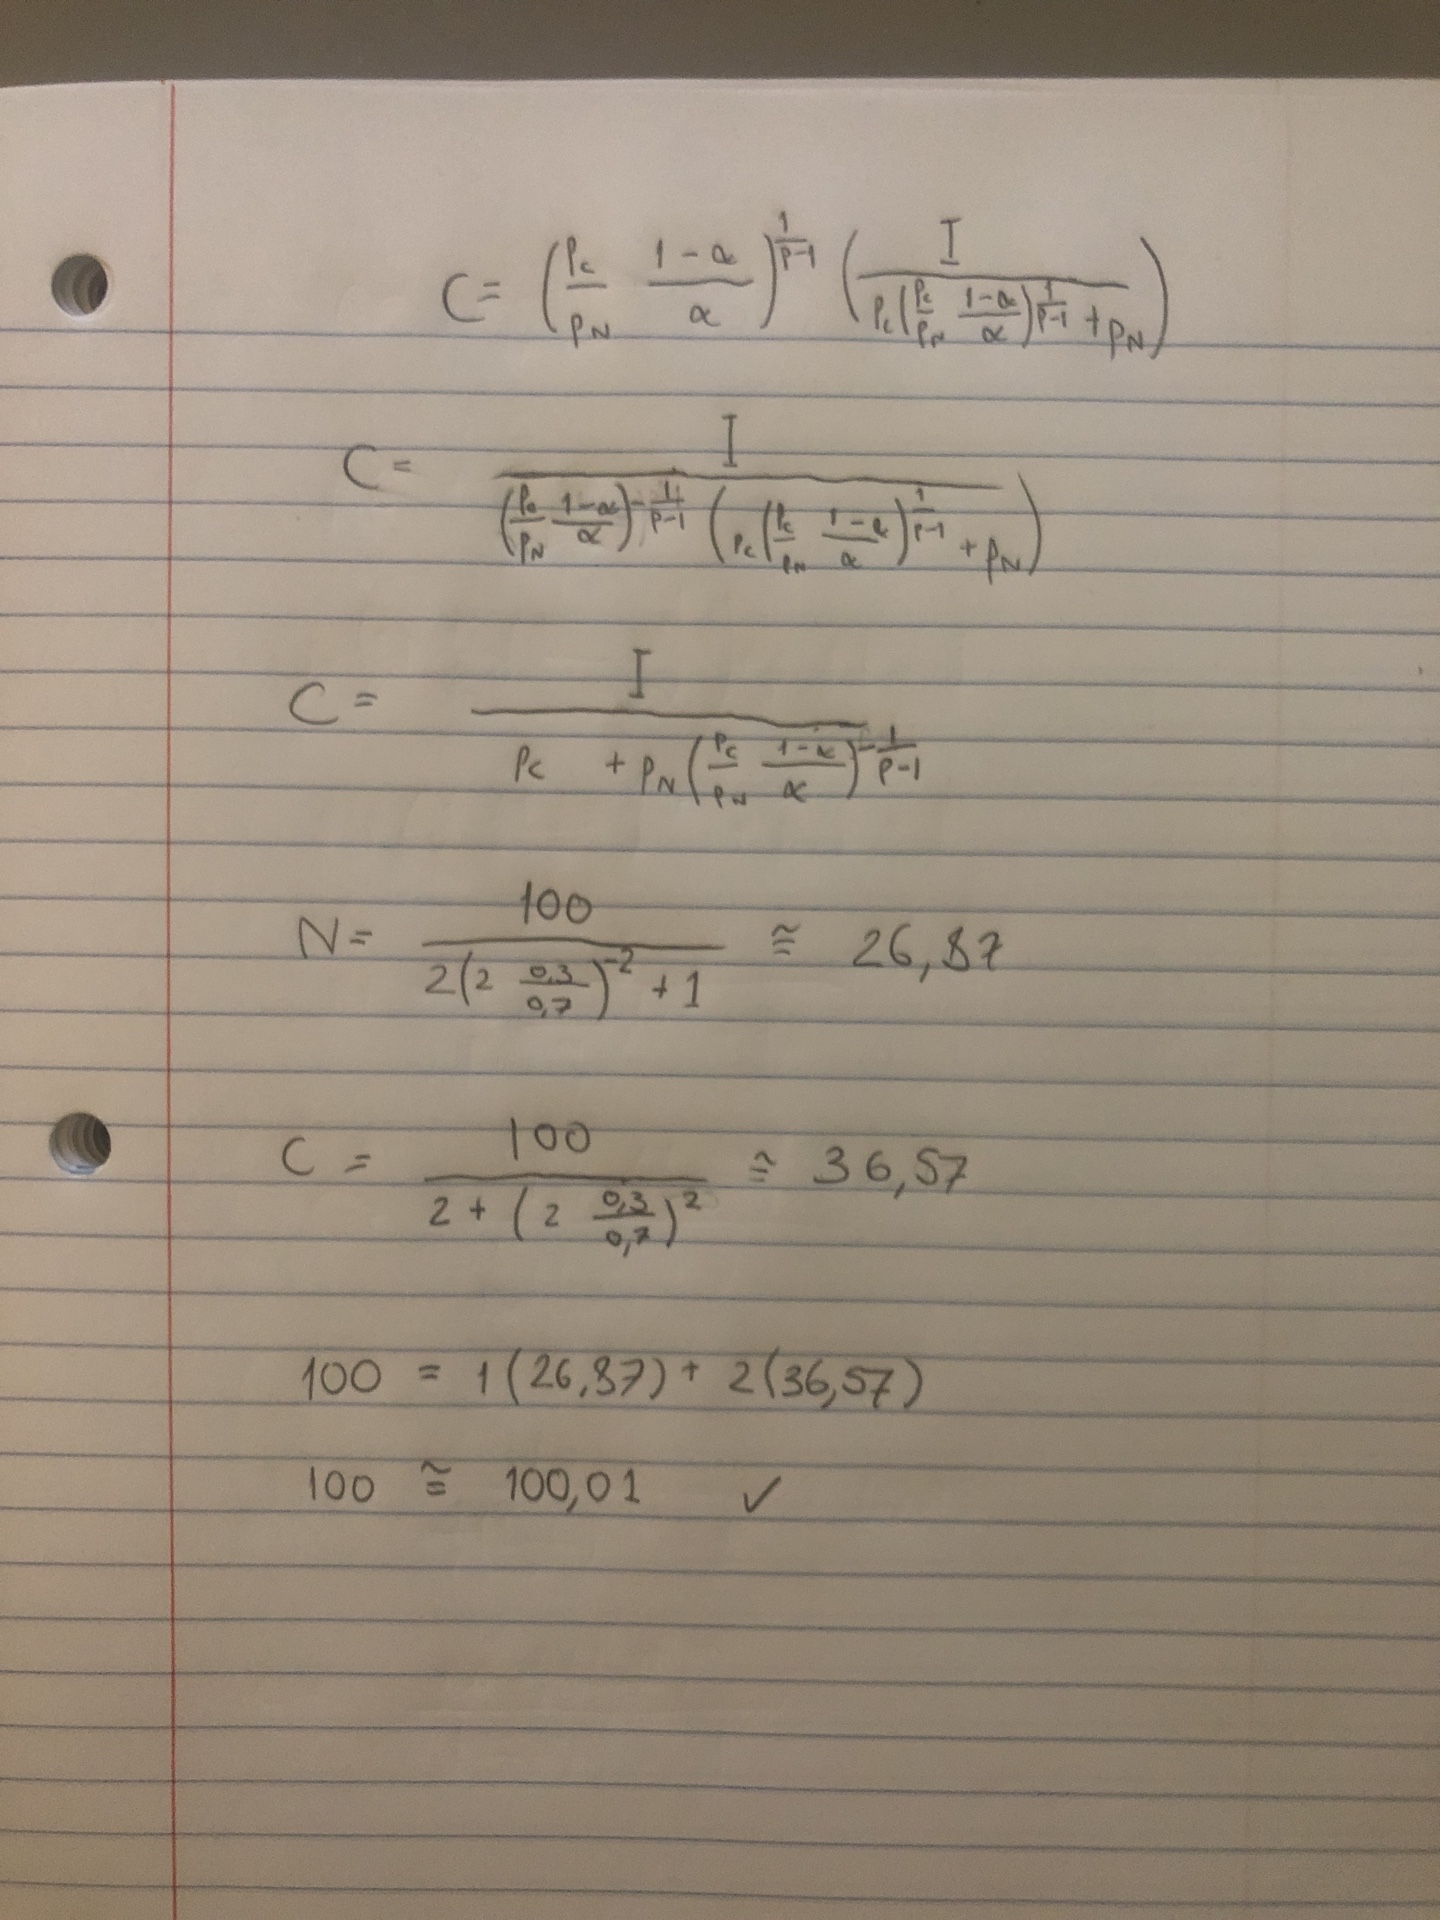 C = (p_C/p_N (1-α)/α)^(1/(ρ-1)) (I/(p_C(p_C/p_N (1-α)/α)^(1/(ρ-1)) + p_N))
C = I/((p_C/p_N (1-α)/α)^(-1/(ρ-1)) (p_C(p_C/p_N (1-α)/α)^(1/(ρ-1)) + p_N))
C = I/(p_C + p_N(p_C/p_N (1-α)/α)^(-1/(ρ-1)))
N = 100/(2(2 0,3/0,7)^(-2) + 1) ≅ 26,87
C = 100/(2 + (2 0,3/0,7)^2) ≅ 36,57
100 = 1(26,87) + 2(36,57)
100 ≅ 100,01 ✓